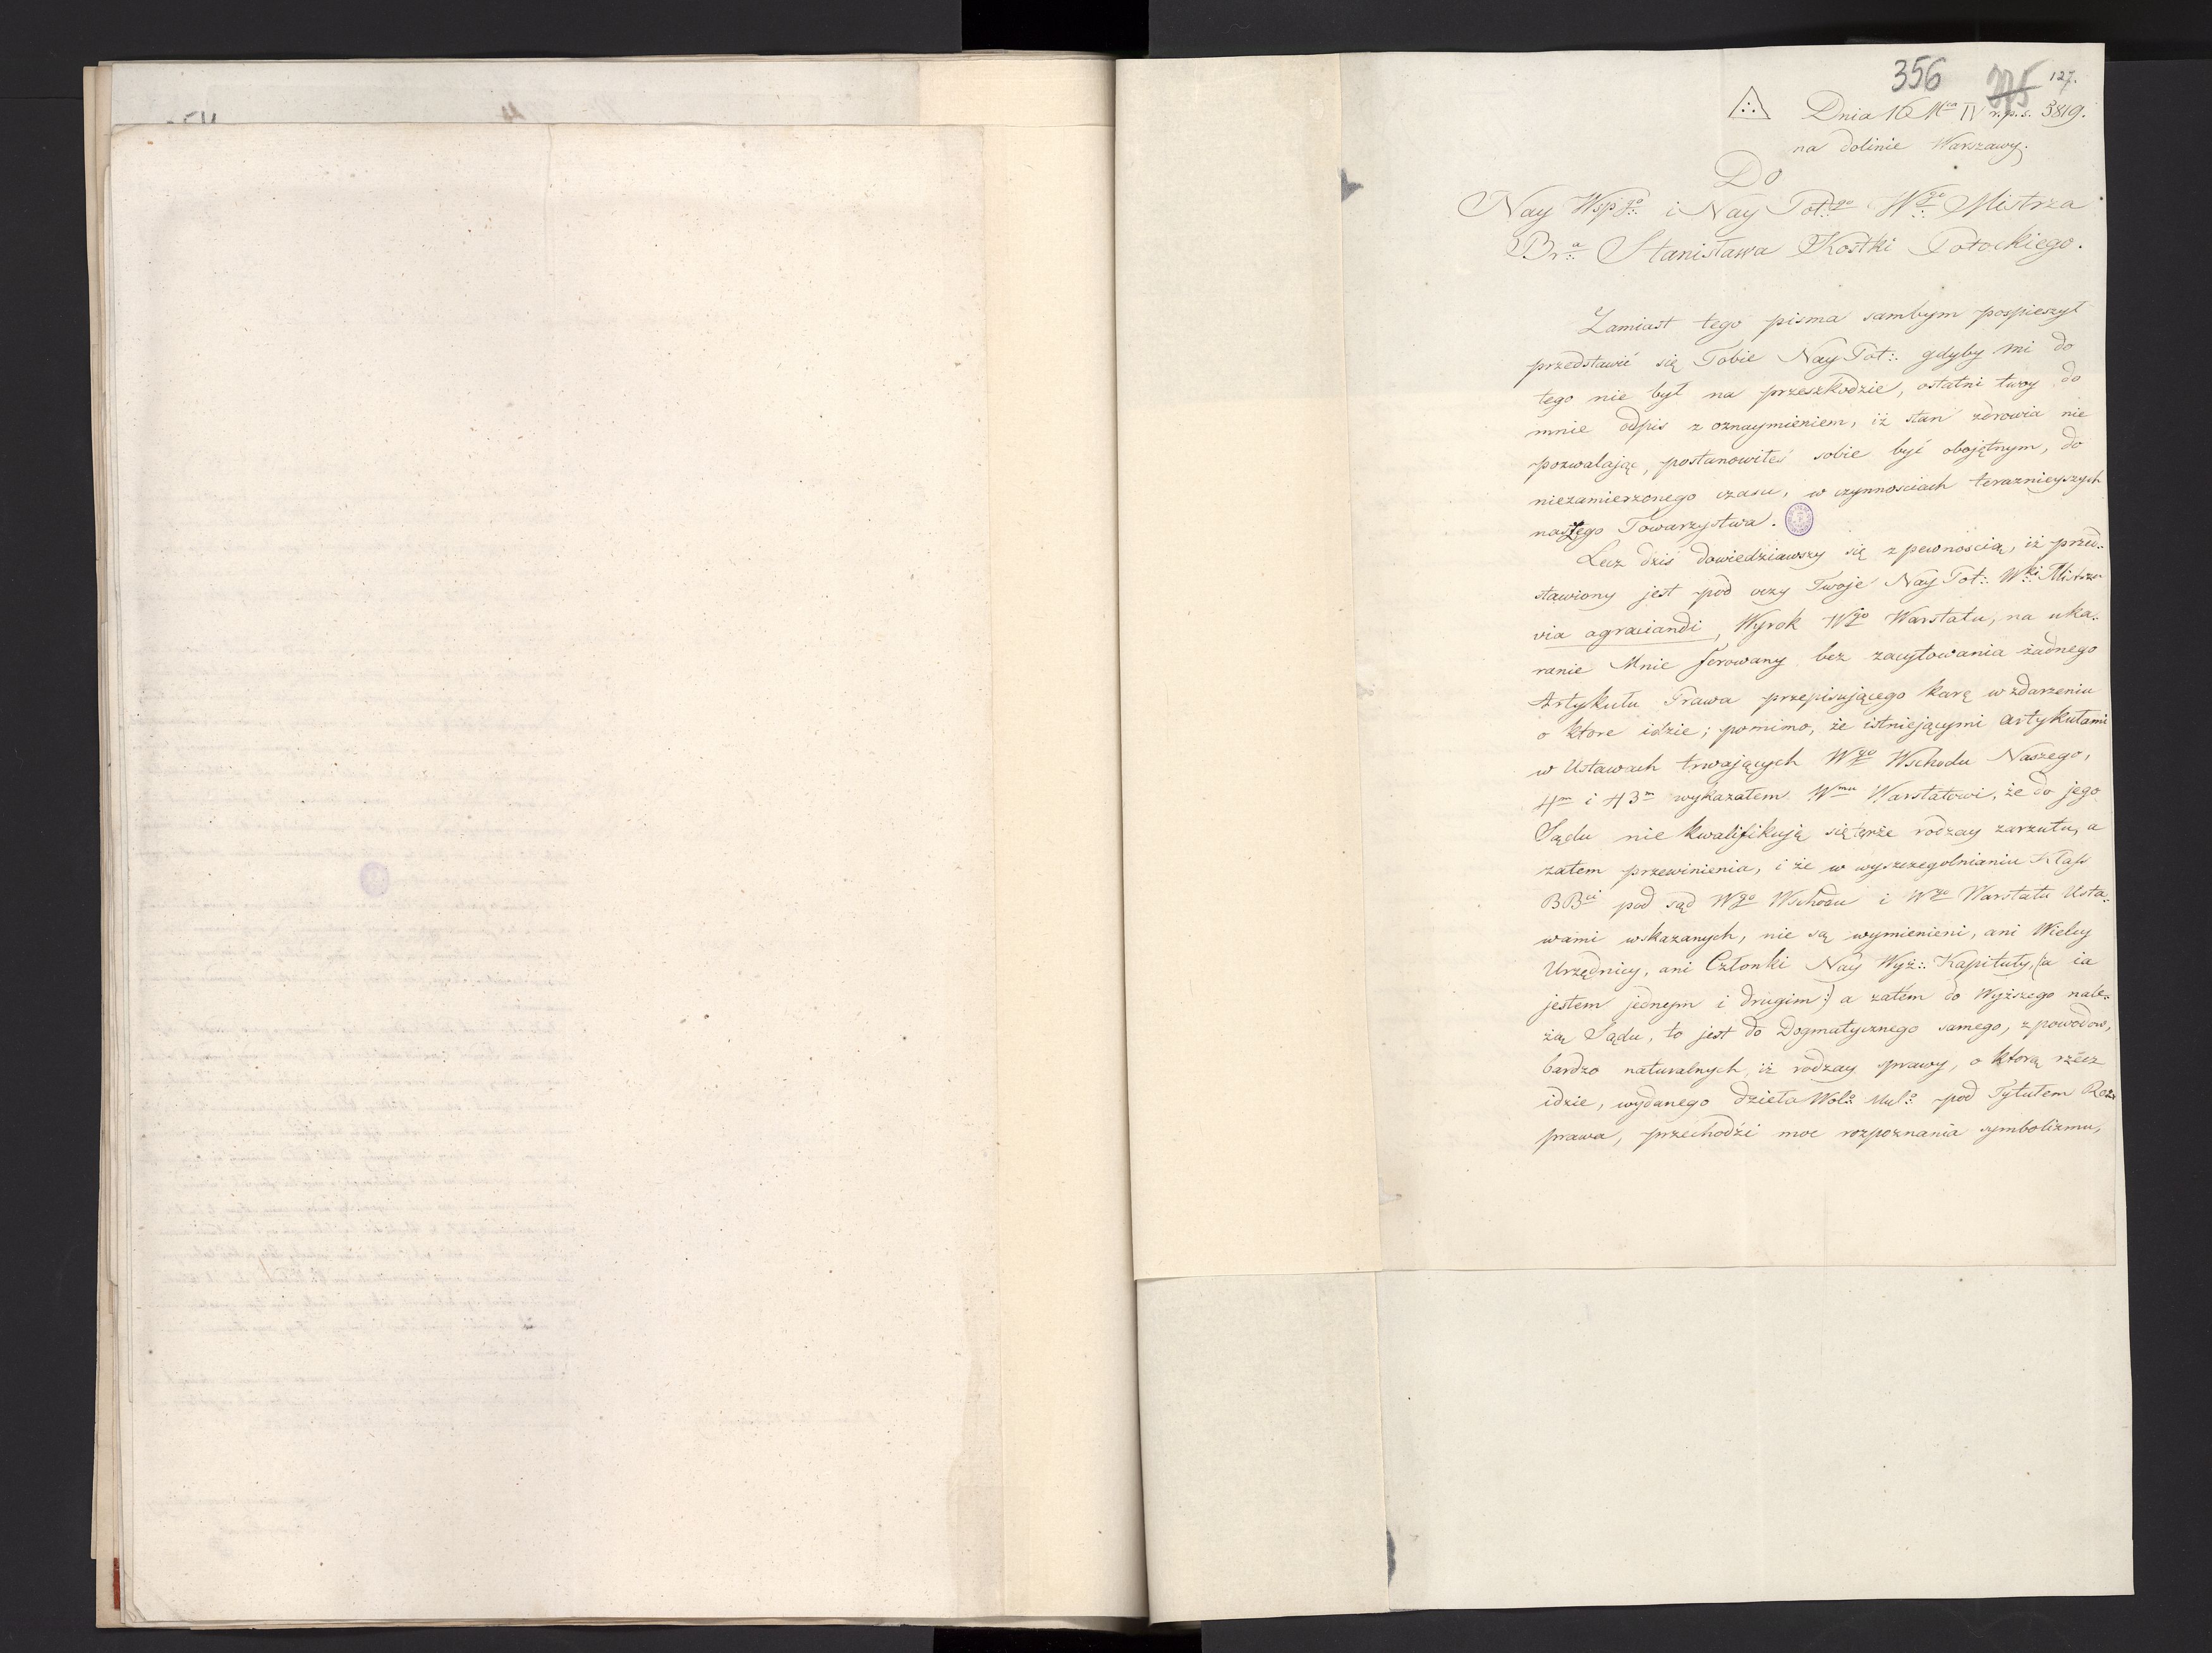 356 275 127.
Dnia 16 Mca IV r.p.s. 5819.
na dolinie Warszawy.
Do
Nay Wspgo:. i Nay Pot:go Wgo Mistrza
Bra:. Stanisława Kostki Potockiego.
Zamiast tego pisma sambym pospieszył
przedstawić się Tobie Nay Pot:. gdyby mi do
tego nie był na przeszkodzie, ostatni twoy do
mnie odpis z oznaymieniem, iż stan zdrowia nie
pozwalając, postanowiłeś sobie być obojętnym, do
niezamierzonego czasu, w czynnosciach teraznieyszych
naszego Towarzystwa.
Lecz dziś dowiedziawszy się z pewnością, iż przed-
stawiony jest pod oczy Twoje Nay Pot:. Wki Mistrzu
via agraciandi, Wyrok Wgo Warstatu, na uka-
ranie Mnie ferowany bez zacytowania żadnego
Artykułu Prawa przepisującego karę w zdarzeniu
o ktore idzie; pomimo, że istniejącymi artykułami
w Ustawach trwających Wgo Wschodu Naszego,
4m i 43m wykazałem Wmu Warstatowi, że do jego
Sądu nie kwalifikują się tęże rodzay zarzutu, a
zatem przewinienia, i że w wyszczegolnianiu Klass
BBci pod sąd Wgo Wschodu i Wgo Warstatu Usta-
wami wskazanych, nie są wymienieni, ani Wielcy
Urzędnicy, ani Członki Nay Wyż:. Kapituły, (a ia
jestem jednym i drugim:) a zatém do Wyższego nale-
żą Sądu, to jest do Dogmatycznego samego, z powodow,
bardzo naturalnych, iż rodzay sprawy, o ktorą rzecz
idzie, wydanego dzieła Wol:o Mul:o pod Tytułem Roz-
prawa, przechodzi moc rozpoznania symbolizmu,